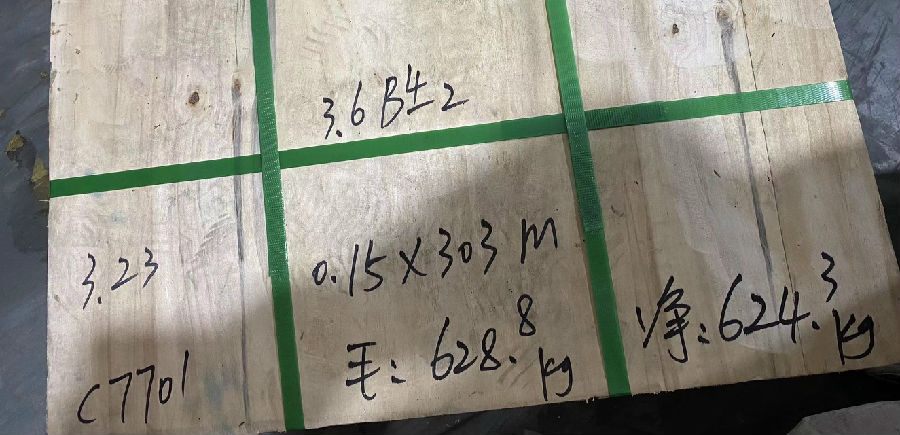 3.6 B4-2
3.23
0.15×303 m
C7701
毛: 628.8 kg
净: 624.3 kg